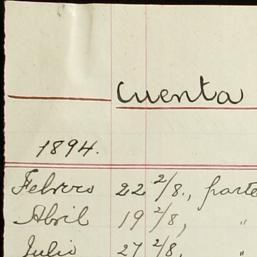 Cuenta
1894.
Febrero 22 2/8., parte
Abril 19 2/8, "
Julio 27 2/8, "